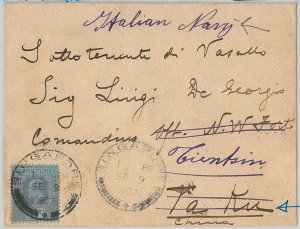 Italian Navy
Sottotenente di Vasallo
Sig Luigi De Georgis
Comandius Off. N. W Fort
Tientsin
Ta Ku
China
SINGAPORE
SE 9
SINGAPORE
SE 9